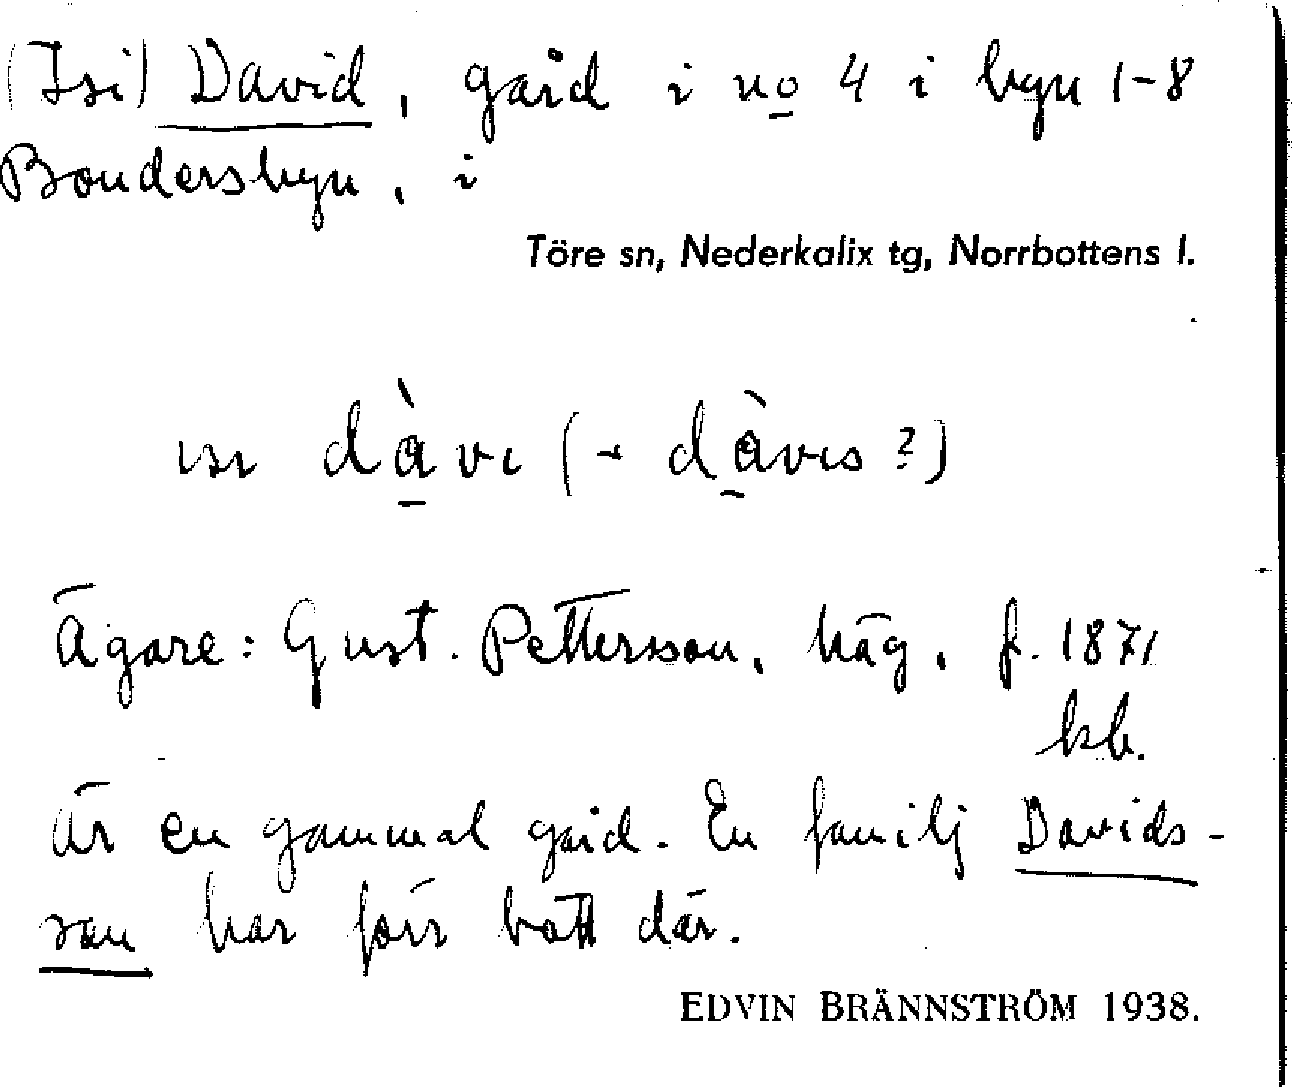 (Isi) David, gård i no 4 i byn 1-8
Bondersbyn, i
Töre sn, Nederkalix tg, Norrbottens l.
ısı dàvı (
dàvıs ?)
Ägare: Gust. Pettersson, häg, f. 1871
kb.
Är en gammal gård. En familj Davids-
son har förr bott där.
EDVIN BRÄNNSTRÖM 1938.